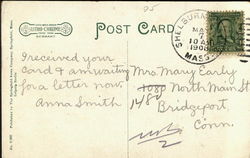 95
LITHO-CHROME
GERMANY
POST CARD
SHELBURNE
MASS.
MA
10 A
1908
I received your
card & am waiting
for a letter now.
Anna Smith
Mrs. Mary Early
1080 North Main St
1480
Bridgeport,
Conn.
2